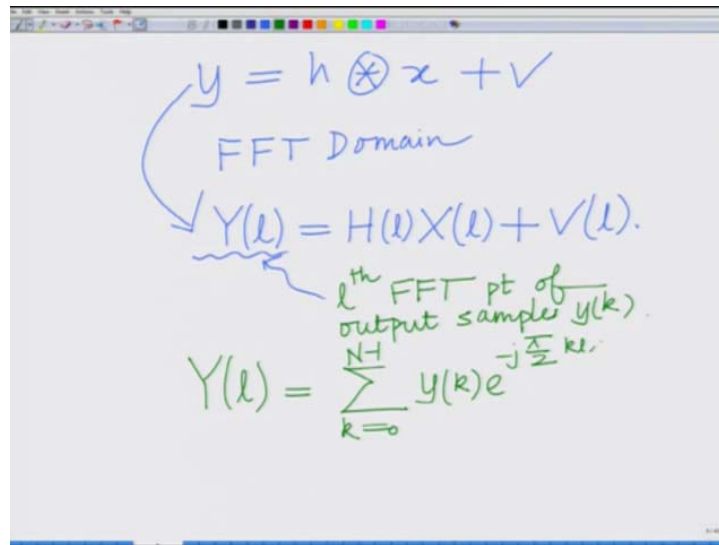 y = h ⊛ x + V
FFT Domain
Y(l) = H(l)X(l) + V(l).
lᵗʰ FFT pt of
output samples y(k).
Y(l) = ∑_{k=0}^{N-1} y(k) e^{-j π/2 kl}.